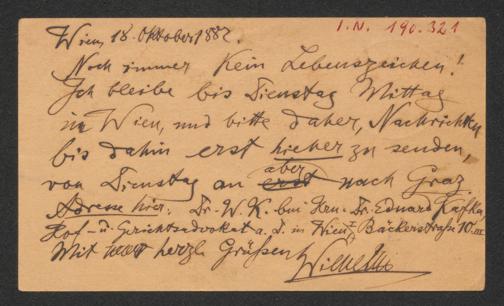 I.N. 190.321
Wien, 18. Oktober 1882.
Noch immer kein Lebenszeichen!
Ich bleibe bis Dienstag Mittag
in Wien, und bitte daher, Nachrichten
bis dahin erst hieher zu senden,
von Dienstag an aber nach Graz.
Adresse hier: Dr. W. K. bei Hrn. Dr. Eduard Kafka,
Hof- u. Gerichtsadvokat a. D. in Wien, I Bäckerstraße 10.
Mit herzl. Grüßen
Wilhelm